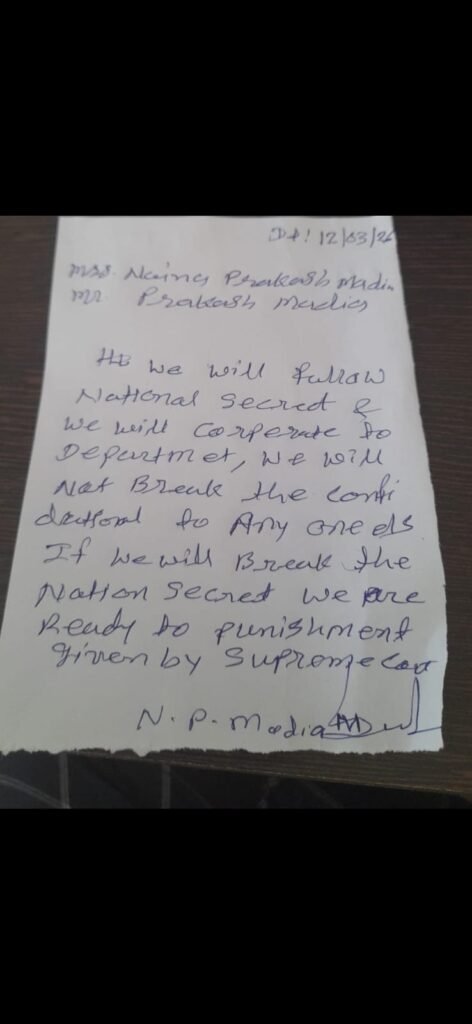 Dt: 12/03/26
Mrs. Naina Prakash Madia
Mr Prakash Madia
We will follow
National Secret &
we will Corperate to
Departmet, we will
Not Break the confi
dational to Any one els
If we will Break the
Nation Secret we are
Ready to punishment
given by Supreme Cou
N. P. Madia